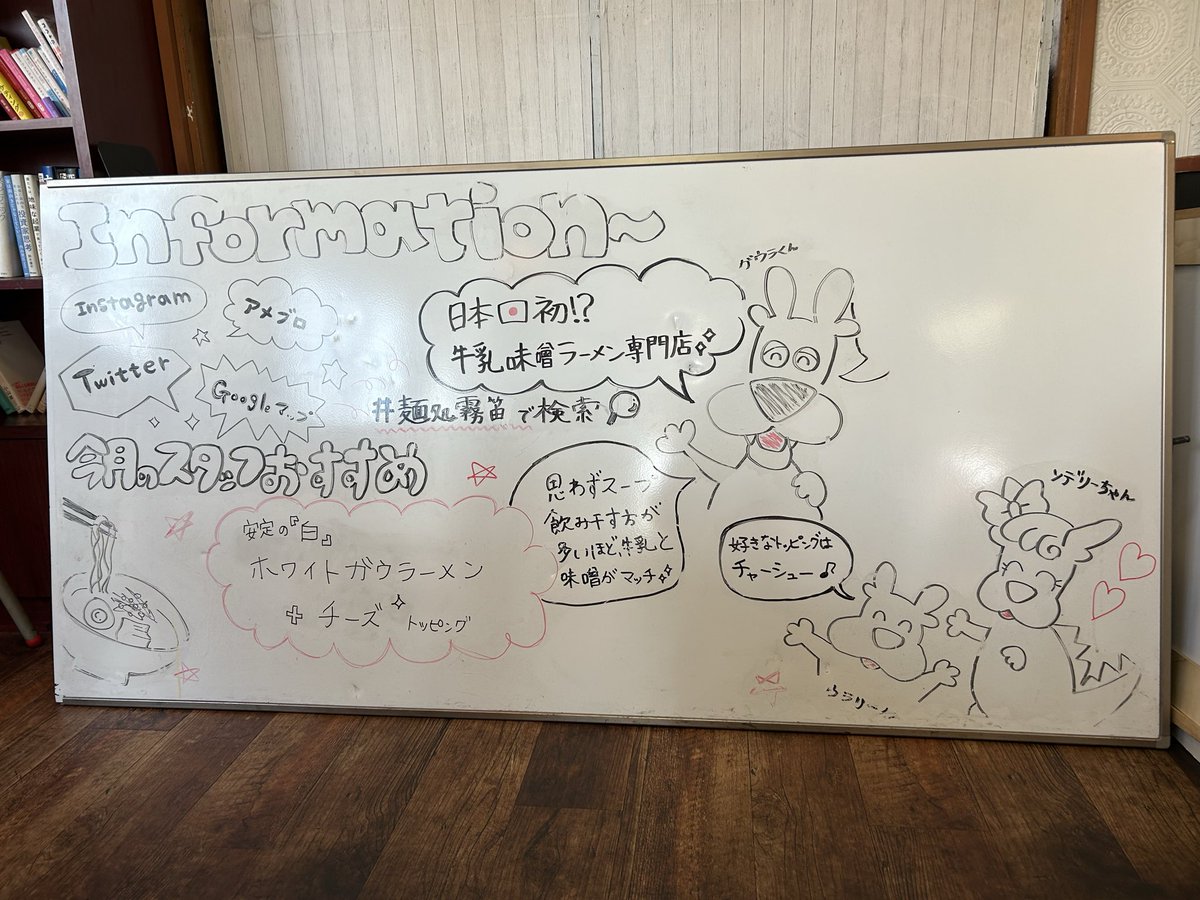 Information~
Instagram
アメブロ
Twitter
Googleマップ
ガウラくん
日本初!?
牛乳味噌ラーメン専門店
#麺処霧笛で検索
今月のスタッフおすすめ
安定の『白』
ホワイトガウラーメン
+ チーズ トッピング
思わずスープ
飲み干す方が
多いほど、牛乳と
味噌がマッチ
好きなトッピングは
チャーシュー♪
ソデリーちゃん